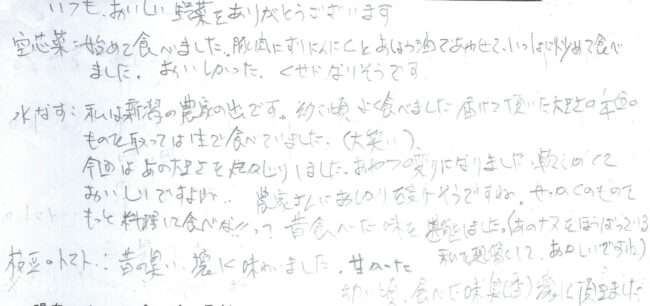 いつも、おいしい野菜をありがとうございます
空芯菜:始めて食べました。豚肉にすりにんにくとあぶら油であわせて、いっしょに炒めて食べ
ました。おいしかった。くせになりそうです。
水なす:私は新潟の農家の出です。幼い頃よく食べました 届けて頂いた大きさの
ものを取っては生で食べていました。(大笑い)
今回はあの大きさを しました。おやつの変りになりました。軽くて
おいしいですよね.. 農家さんにおしかりを受けそうですね。せっかくのもので
もっと料理して食べな!!って 昔食べた味を しました。(あのナスをほうばっている
私を想像して、おかしいですね)
枝豆のトマト:昔の臭い、懐しく味わいました。甘かった
幼い頃、食べた味、臭(大)懐しく頂きました